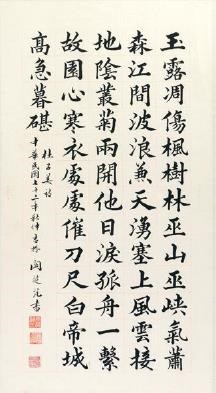 玉露凋傷楓樹林巫山巫峽氣蕭
森江間波浪兼天湧塞上風雲接
地陰叢菊兩開他日淚孤舟一繫
故園心寒衣處處催刀尺白帝城
高急暮碪
杜子美詩
中華民國七十二年秋仲